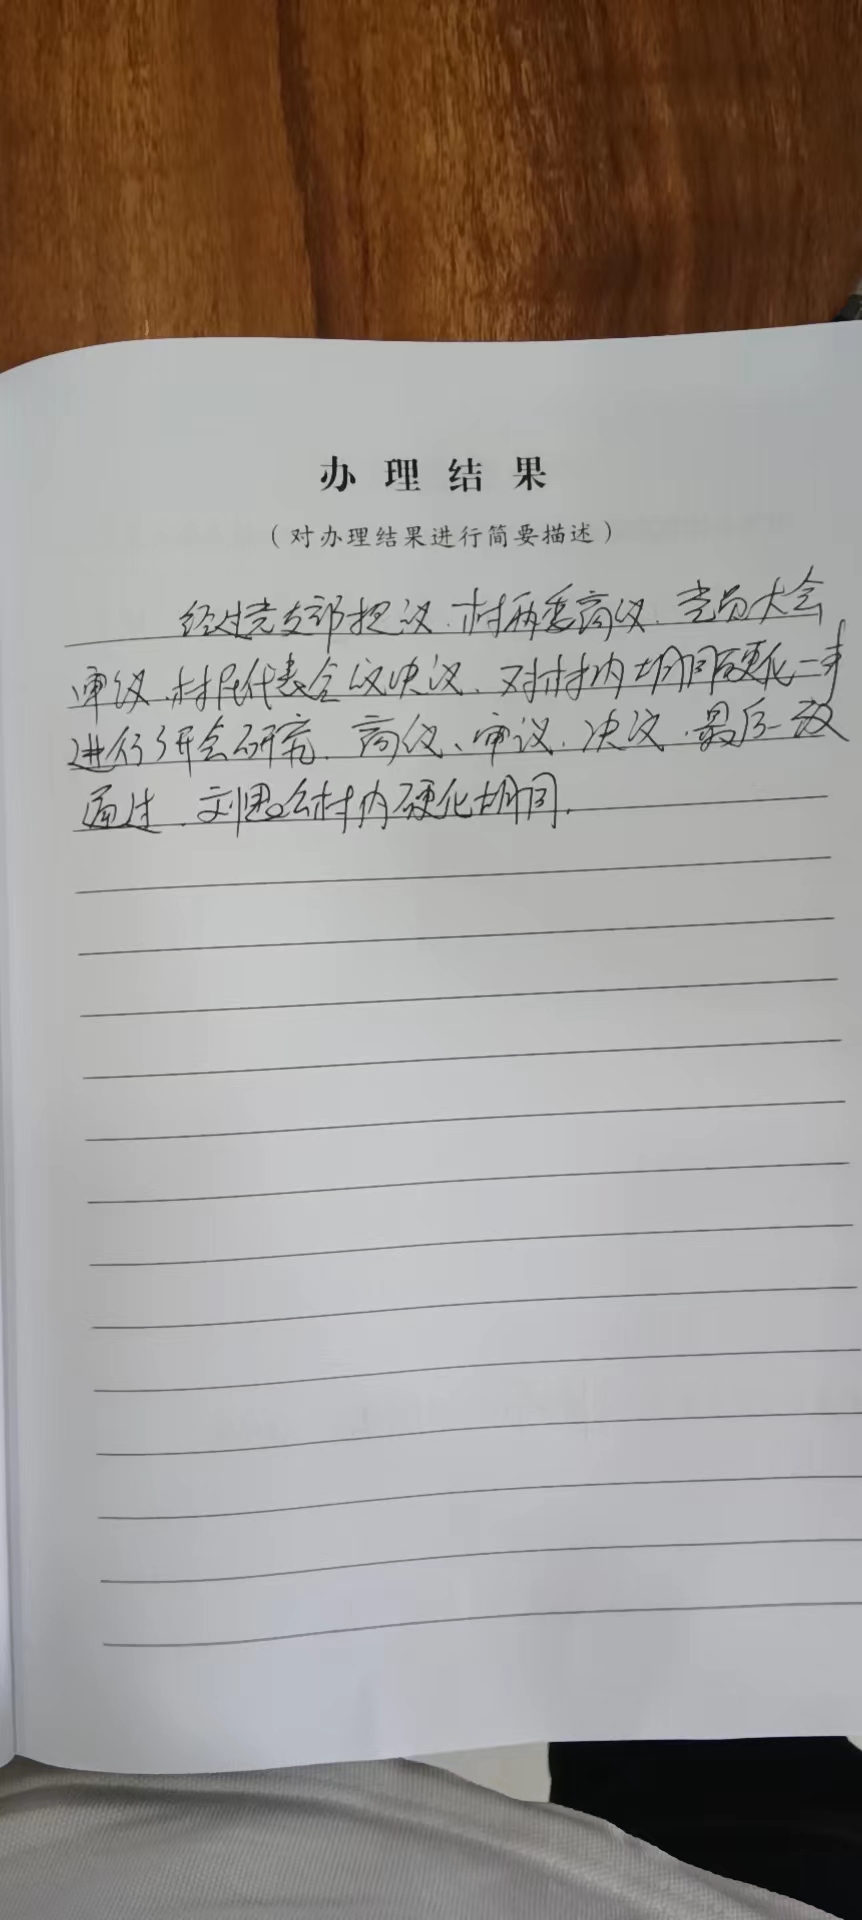 办理结果
（对办理结果进行简要描述）
经过党支部提议、村两委商议、党员大会
审议、村民代表会议决议、对村内胡同硬化一事
进行开会研究、商议、审议、决议、最后一致
通过、刘思公村内硬化胡同。